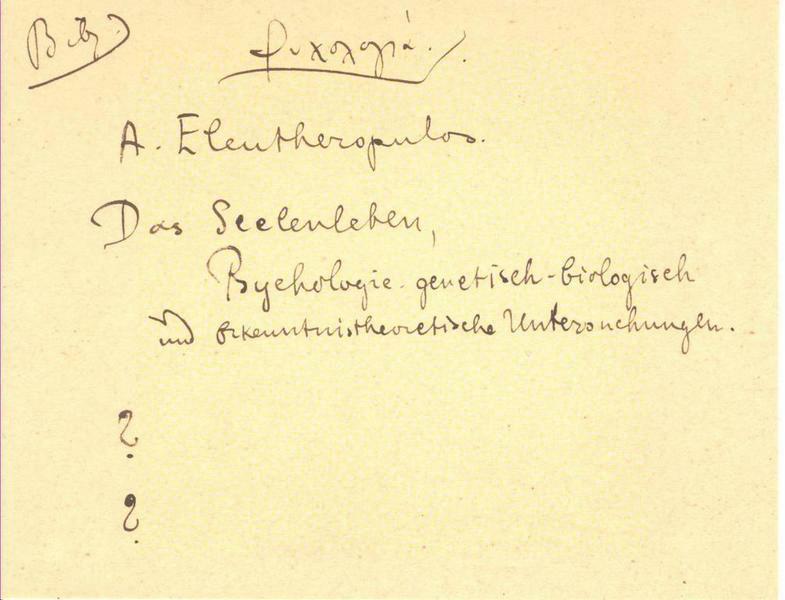 ψυχολογιά.
A. Eleutheropulos.
Das Seelenleben,
Psychologie. genetisch-biologisch
und Erkenntnistheoretische Untersuchungen.
?
?